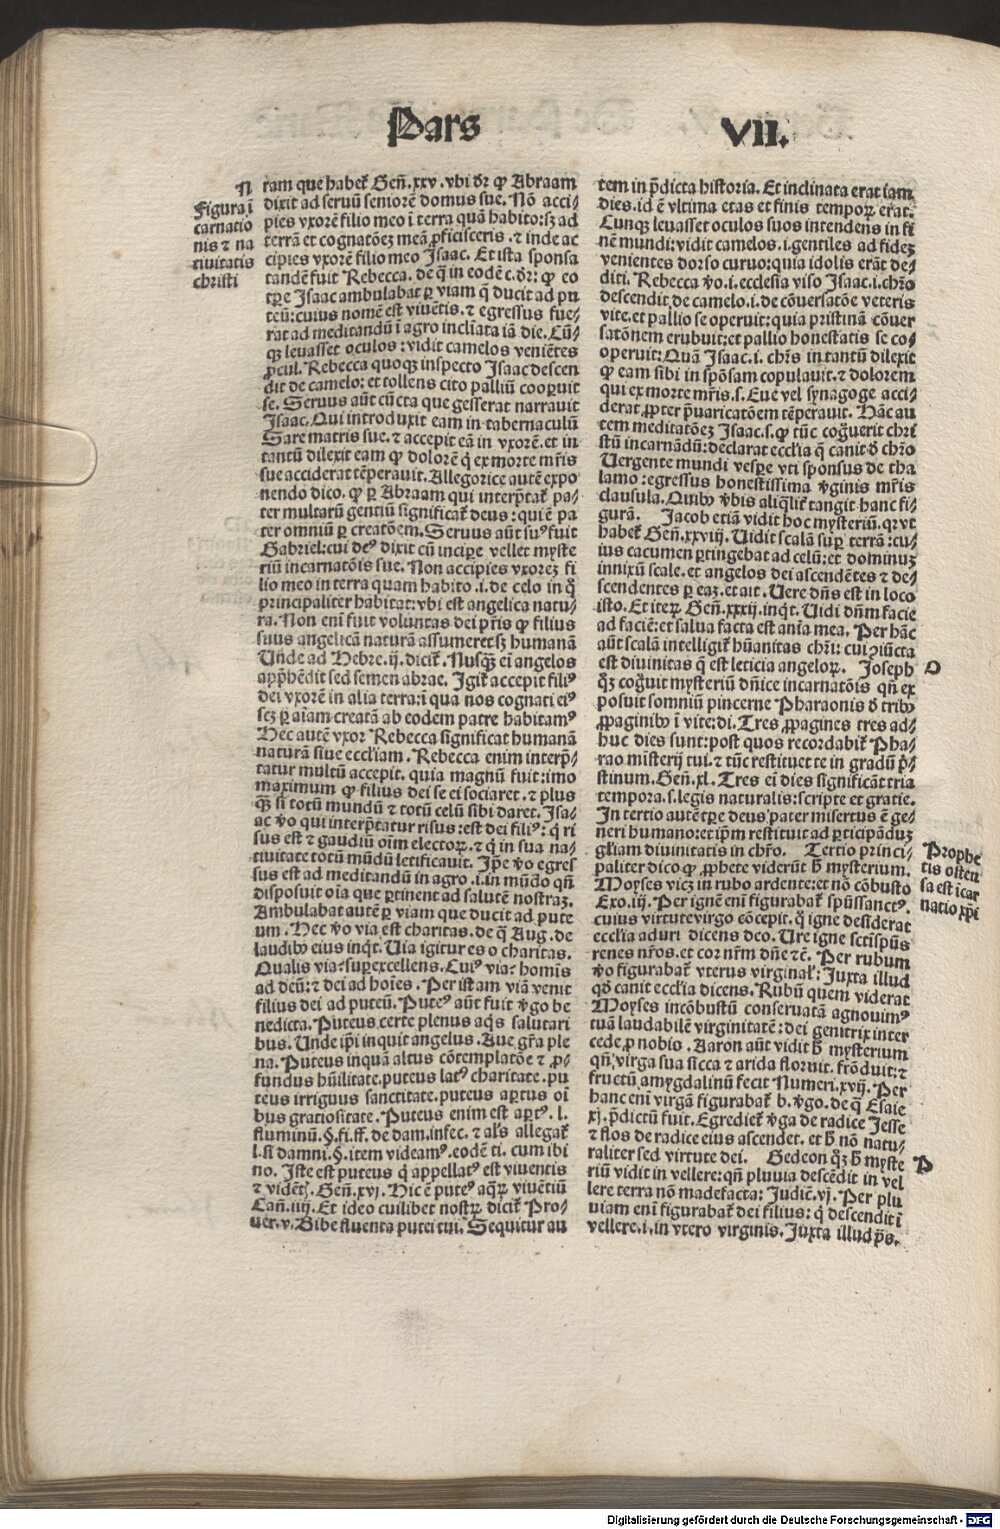 Pars VII.
N
Figura ĩ
carnatio
nis ⁊ na
tiuitatis
christi
ram que habet᷑ Geñ.xxv.vbi d̄r ꝙ Abraam
dixit ad seruũ seniorẽ domus sue. Nõ acci⸗
pies vxorẽ filio meo ĩ terra quã habito:sꝫ ad
terrã et cognatõeꝫ meã ꝓficisceris.⁊ inde ac
cipies vxorẽ filio meo Isaac. Et ista sponsa
tandẽ fuit Rebecca. de q̃ in eodẽ c.d̄r: ꝙ eo
tꝑe Isaac ambulabat ꝑ viam q̃ ducit ad pu
teũ: cuius nomẽ est viuẽtis.⁊ egressus fue⸗
rat ad meditandũ ĩ agro incliata iã die. Cũ⸗
qꝫ leuasset oculos: vidit camelos veniẽtes
ꝓcul. Rebecca quoqꝫ inspecto Isaac descen
dit de camelo: et tollens cito palliũ cooꝑuit
se. Seruus aũt cũcta que gesserat narrauit
Isaac. Qui introduxit eam in tabernaculũ
Sare matris sue.⁊ accepit eã in vxorẽ.et in
tantũ dilexit eam ꝙ dolorẽ q̇ ex morte mr̃is
sue acciderat tẽperauit. Allegorice autẽ expo
nendo dico. ꝙ ꝑ Abraam qui interp̃tat᷑ pa⸗
ter multarũ gentiũ significat᷑ deus: qui ẽ pa
ter omniũ ꝑ creatõem. Seruus aũt suꝰ fuit
Gabriel: cui deꝰ dixit cũ incipe vellet myste
riũ incarnatõis sue. Non accipies vxoreꝫ fi
lio meo in terra quam habito.i.de celo in q̊
principaliter habitat: vbi est angelica natu⸗
ra. Non enĩ fuit voluntas dei pr̃is ꝙ filius
suus angelicã naturã assumeret sꝫ humanã
Unde ad Hebre.ij. dicit᷑. Nusqꝫ eĩ angelos
apphẽdit sed semen abrae. Igit᷑ accepit filiꝰ
dei vxorẽ in alia terra: ĩ qua nos cognati eiꝰ
scꝫ ꝑ aĩam creatã ab eodem patre habitamꝰ
Hec autẽ vxor Rebecca significat humanã
naturã siue eccl̃iam. Rebecca enim interp̃⸗
tatur multũ accepit. quia magnũ fuit: imo
maximum ꝙ filius dei se ei sociaret.⁊ plus
qꝫ si totũ mundũ ⁊ totũ celũ sibi daret. Isa⸗
ac v̊o qui interp̃tatur risus: est dei filiꝰ: q̇ ri
sus est ⁊ gaudiũ oĩm electoꝝ.⁊ q̇ in sua na⸗
tiuitate totũ mũdũ letificauit. Ip̃e v̊o egres
sus est ad meditandũ in agro.i.in mũdo qñ
disposuit oĩa que ꝑtinent ad salutẽ nostraꝫ.
Ambulabat autẽ ꝑ viam que ducit ad pute
um. Hec v̊o via est charitas. de q̃ Aug. de
laudibꝰ eius inq̃t. Uia igitur es o charitas.
Qualis via? suꝑexcellens. Cuiꝰ via? homĩs
ad deũ: ⁊ dei ad hoĩes. Per istam viã venit
filius dei ad puteũ. Puteꝰ aũt fuit v̊go be
nedicta. Puteus certe plenus aq̃s salutari
bus. Unde ip̃i inquit angelus. Aue gr̃a ple
na. Puteus inquã altus cõtemplatõe ⁊ ꝓ⸗
fundus hũilitate. puteus latꝰ charitate. pu
teus irriguus sanctitate. puteus aꝑtus oĩ
bus gratiositate. Puteus enim est aꝑtꝰ. l.
fluminũ.§.fi.ff.de dam.infec.⁊ al̃s allegat᷑
l.si damni.§.item videamꝰ.eodẽ ti. cum ibi
no. Iste est puteus q̇ appellatꝰ est viuentis
⁊ vidẽtꝭ. Geñ.xvj. Hic ẽ puteꝰ aqꝝ viuẽtiũ
Cañ.iiij. Et ideo cuilibet nostꝝ dicit᷑ Pro⸗
uer.v. Bibe fluenta putei tui. Sequitur au
tem in p̃dicta historia. Et inclinata erat iam
dies. id ẽ vltima etas et finis tempoꝝ erat.
Cunqꝫ leuasset oculos suos intendens in fi
nẽ mundi: vidit camelos.i.gentiles ad fideꝫ
venientes dorso curuo: quia idolis erãt de⸗
diti. Rebecca v̊o.i.ecclesia viso Isaac.i.chr̃o
descendit de camelo.i.de cõuersatõe veteris
vite.et pallio se operuit: quia pristinã cõuer
satõnem erubuit: et pallio honestatis se co⸗
operuit: Quã Isaac.i.chr̃s in tantũ dilexit
ꝙ eam sibi in spõsam copulauit.⁊ dolorem
qui ex morte mr̃is.s. Eue vel synagoge acci⸗
derat ꝓpter p̃uaricatõem tẽperauit. Hãc au
tem meditatõeꝫ Isaac.s.ꝙ tũc cog̃uerit chri
stũ incarnãdũ: declarat eccl̃ia q̃ canit d̊ chr̃o
Uergente mundi vesꝑe vti sponsus de tha
lamo: egressus honestissima v̊ginis mr̃is
clausula. Quibꝰ v̊bis aliq̃lit᷑ tangit hanc fi⸗
gurã. Jacob etiã vidit hoc mysteriũ. qꝛ vt
habet᷑ Geñ.xxviij. Uidit scalã suꝑ terrã: cu⸗
ius cacumen ꝑtingebat ad celũ: et dominuꝫ
innixũ scale. et angelos dei ascendẽtes ⁊ de⸗
scendentes ꝑ eaꝫ. et ait. Uere dñs est in loco
isto. Et iteꝝ Geñ.xxxij. inq̃t. Uidi dñm facie
ad faciẽ: et salua facta est aĩa mea. Per hãc
aũt scalã intelligit᷑ hũanitas chr̃i: cui ꝯiũcta
est diuinitas q̃ est leticia angeloꝝ. Joseph
q̊ꝫ cog̃uit mysteriũ dñice incarnatõis qñ ex
posuit somniũ pincerne Pharaonis d̊ tribꝰ
ꝓpaginibꝰ ĩ vite: di. Tres ꝓpagines tres ad⸗
huc dies sunt: post quos recordabit᷑ Pha⸗
rao misterij tui.⁊ tũc restituet te in gradũ p̃⸗
stinum. Geñ.xl. Tres eĩ dies significãt tria
tempora.s.legis naturalis: scripte et gratie.
In tertio autẽ tꝑe deus pater misertus ẽ ge⸗
neri humano: et ip̃m restituit ad ꝑticipãduꝫ
gl̃iam diuinitatis in chr̃o. Tertio princi⸗
paliter dico ꝙ ꝓphete viderũt h̊ mysterium.
Moyses viꝫ in rubo ardente: et nõ cõbusto
Exo.iij. Per ignẽ enĩ figurabat᷑ sp̃ussanctꝰ.
cuius virtute virgo cõcepit. q̊ igne desiderat
eccl̃ia aduri dicens deo. Ure igne sc̃tisp̃us
renes nr̃os.et cor nr̃m dñe ⁊c̃. Per rubum
v̊o figurabat᷑ vterus virginal᷑: Juxta illud
qd̊ canit eccl̃ia dicens. Rubũ quem viderat
Moyses incõbustũ conseruatã agnouimꝰ
tuã laudabilẽ virginitatẽ: dei genitrix inter
cede ꝓ nobis. Aaron aũt vidit h̊ mysterium
qñ virga sua sicca ⁊ arida floruit. frõduit: ⁊
fructũ amygdalinũ fecit Numeri.xvij. Per
hanc enĩ virgã figurabat᷑ b.v̊go. de q̃ Esaie
xj. p̃dictũ fuit. Egrediet᷑ v̊ga de radice Jesse
⁊ flos de radice eius ascendet. et h̊ nõ natu⸗
raliter sed virtute dei. Gedeon q̊ꝫ h̊ myste
riũ vidit in vellere: qñ pluuia descẽdit in vel
lere terra nõ madefacta: Judic̃.vj. Per plu
uiam enĩ figurabat᷑ dei filius: q̇ descendit ĩ
vellere.i.in vtero virginis. Juxta illud p̃s.
O
Prophe
tis osten
sa est ĩcar
natio xp̃i
P
Digitalisierung gefördert durch die Deutsche Forschungsgemeinschaft - DFG